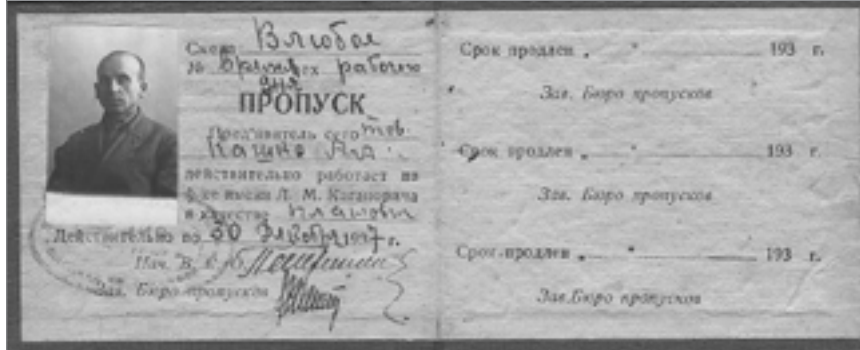 Влюбое
время рабочего
дня
ПРОПУСК
Предъявитель сего тов.
действительно работает на
ф-ке имени Л. М. Кагановича
в качестве
Действительно по 30 1937 г.
Нач. В. О.
Зав. Бюро пропусков
Срок продлен „ “ 193 г.
Зав. Бюро пропусков
Срок продлен „ “ 193 г.
Зав. Бюро пропусков
Срок продлен „ “ 193 г.
Зав. Бюро пропусков